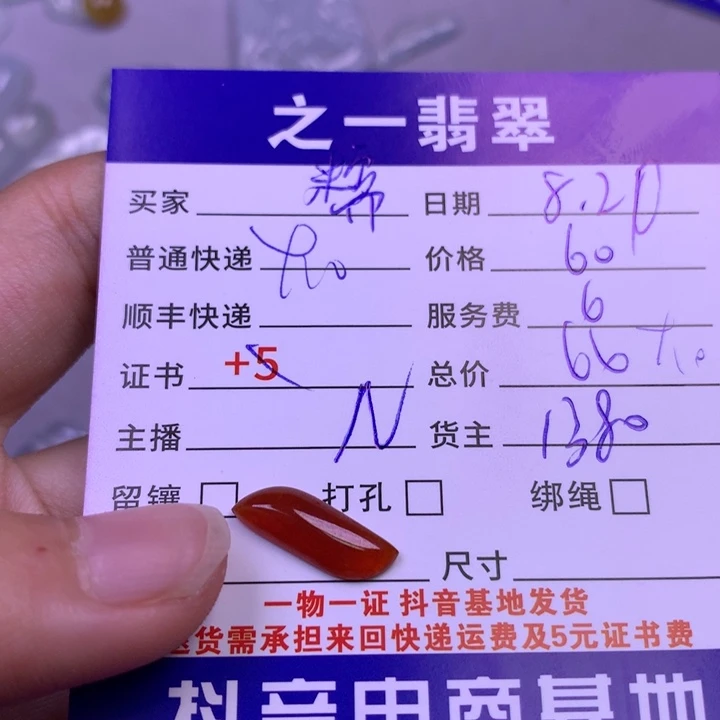 之一翡翠
买家 日期 8.20
普通快递 价格 60
顺丰快递 服务费 6
证书 +5 总价 66
主播 N 货主 1380
留镶 打孔 绑绳
尺寸
一物一证 抖音基地发货
退货需承担来回快递运费及5元证书费
抖音电商基地